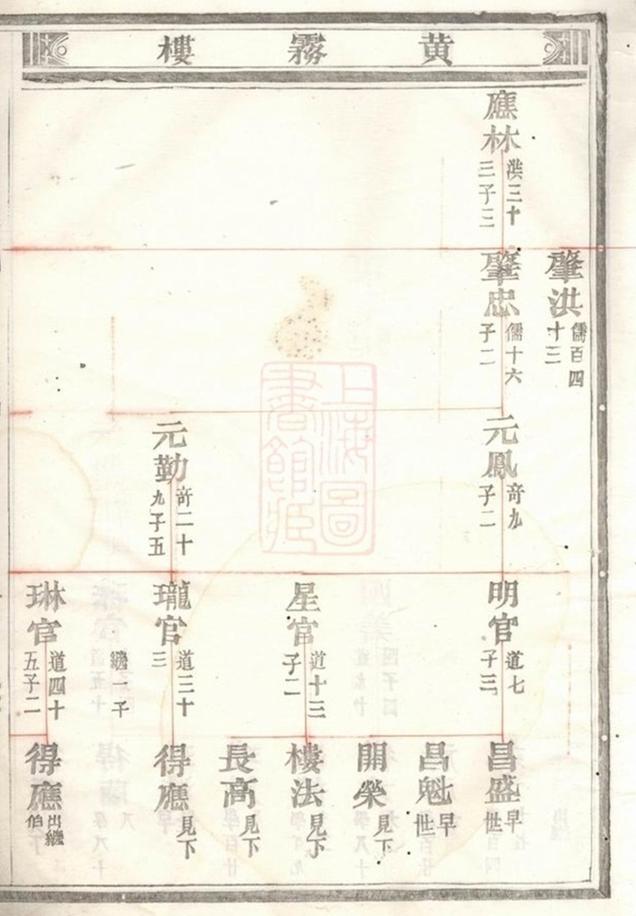 黄霧樓
應林 洪三十三子三
肇洪 儒百四十三
肇忠 儒十六子二
元鳳 奇九子二
元勤 奇二十九子五
明官 道七子三
星官 道十三子二
瓏官 道三十三 繼一子
琳官 道四十五子二
昌盛 早世
昌魁 早世
開榮 見下
樓法 見下
長高 見下
得應 見下
得應 出繼伯
上海圖書館藏